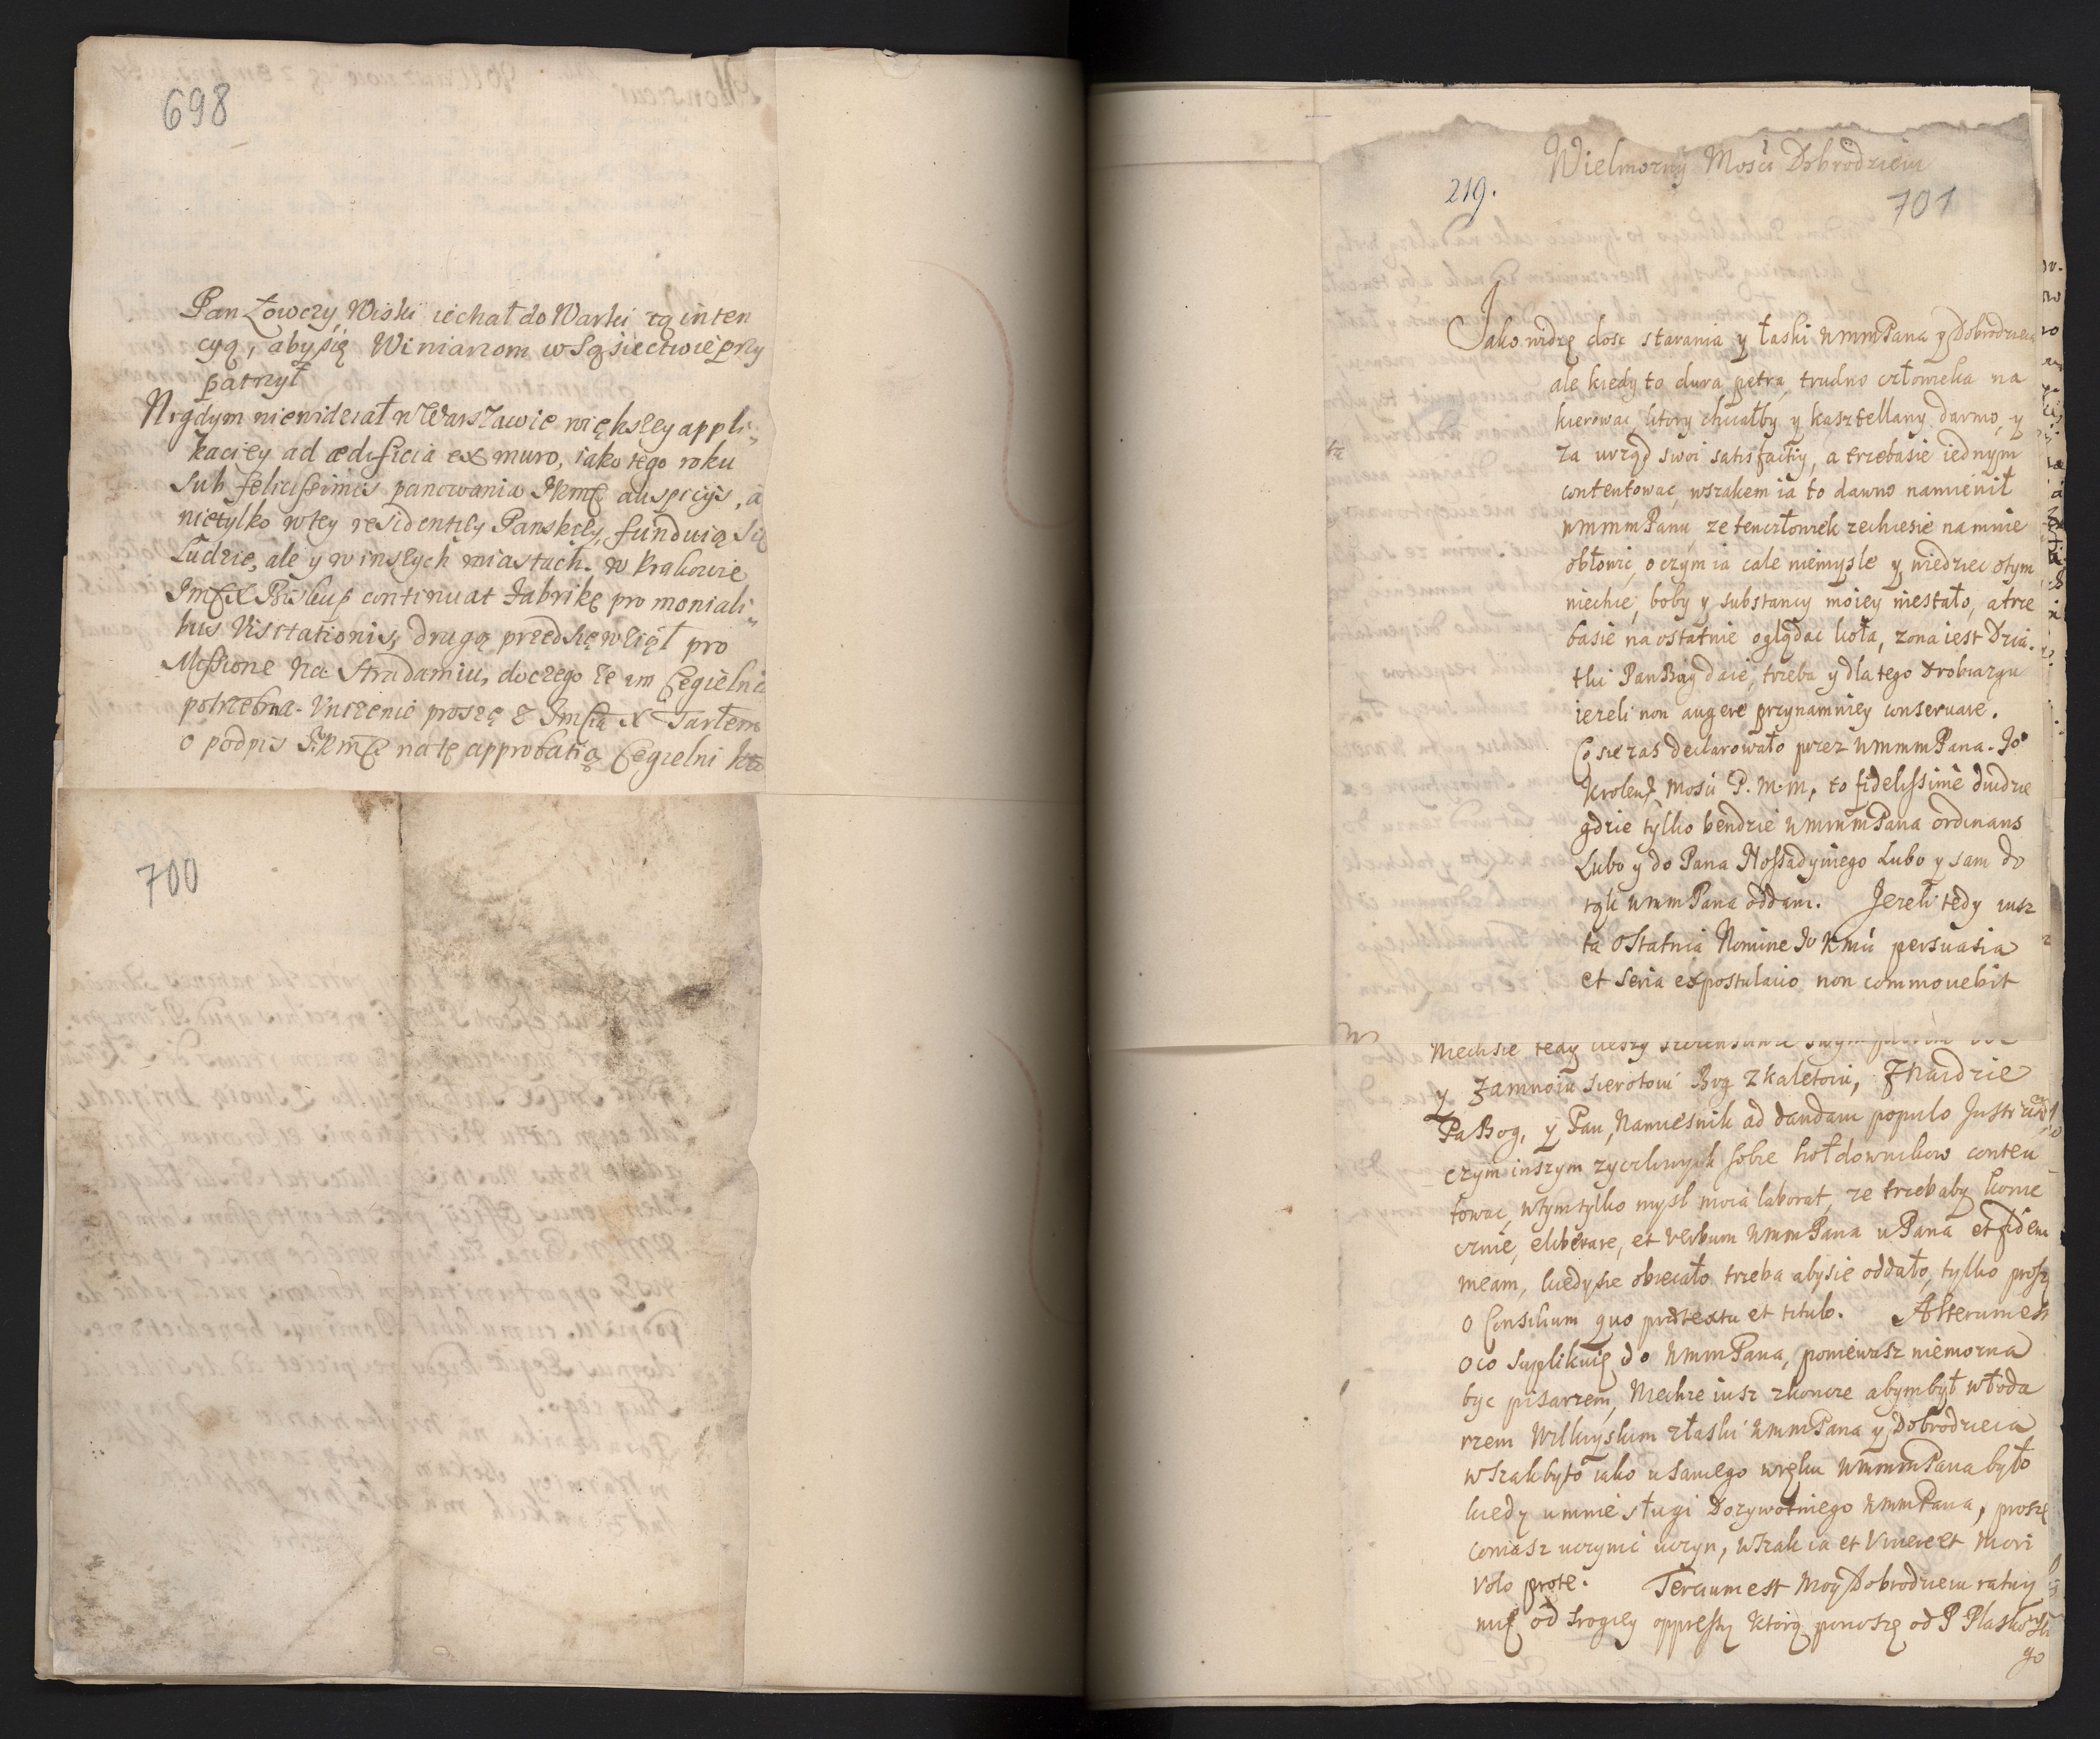 698
Pan Łowczy Wiski iechał do Warki tą inten
cyą, aby się Winiarzom w Sąsiectwie przy
patrzył
Nigdym niewidział w Warszawie większey appli„
kaciey ad ædificia ex muro, iako tego roku
sub felicissimis panowania JKmc auspicijs, a
nietylko w tey residentiey Panskiey, funduią się
Ludzie, ale y w inszych miastach. w Krakowie
Jmc X Biskup continuat fabrikę pro moniali„
bus Visitationis, drugą przedsięwziął pro
Missione na Stradamiu, do czego ze im Cegielnia
potrzebna. Vniżenie proszę z Jmcią X Tarłem
o podpis JKmc na tę approbatią Cegielni
700
Wielmozny Mości Dobrodzieiu
219.
701
Jako widzę dosc starania y łaski WmmPana y Dobrodzieia
ale kiedy to dura petra, trudno człowieka na
kierowac, ktory chciałby y kasztellany darmo, y
za urząd swoi satisfactiy, a trzebasie iednym
contentowac, wszakem ia to dawno namienił
WmmmPanu, ze ten człowiek zechcesie na mnie
obłowic, o czym ia cale niemysle y wiedziec otym
niechce, boby y substancy moiey niestało, a trze
basie na ostatnie oglądac koła, zona iest Dzia.
tki Pan Bog daie, trzeba y dla tego drobiazgu
iezeli non augere przynamniey conseruare.
Co sie zas declarowało przez WmmmPana. Jo
Krolewy Mosci P. M. m, to fidelissime
gdzie tylko bendzie WmmmPana ordinans
Lubo y do Pana Lubo y sam do
rąk WmmPana oddam. Jezeli tedy iusz
ta ostatnia Nomine Jo persuasia
et seria expostulacio non commouebit
Niechsie tedy cieszy
y zamnoiu sierotoiu Bog z kaletoiu, Znaidzie
Pa Bog, y Pan, Namiesnik ad dandam populo Justitiam
czym inszym zyczliwych sobie hołdownikow conten
towac, w tym tylko mysl moia laborat, ze trzebaby konie
cznie, eliberare, et verbum WmmPana u Pana et fidem
meam, kiedysie obiecało trzeba abysie oddało, tylko proszę
o Consilium quo prætextu et titulo. Alterum est
oco suplikuię do WmmPana, poniewasz niemozna
byc pisarzem, Niechze iusz zkoncze abym był włoda
rzem Wilkiyskim złaski WmmPana y Dobrodzieia
wszak było iako u samego wręku WmmmPana było
kiedy umnie sługi dozywotniego WmmPana, prosze
comasz uczynic uczyn, wszak ia et Viuere et Mori
Volo pro te. Tercium est Moy Dobrodzieiu ratuy
mię od srogiey oppressiy ktorą ponoszę od P
go